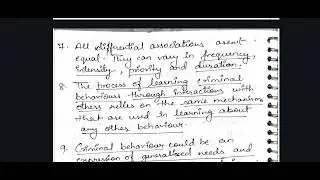 7. All differential associations aren't
equal. They can vary in frequency,
intensity, priority and duration.
8. The process of learning criminal
behaviours through interactions with
others relies on the same mechanisms
that are used in learning about
any other behaviour.
9. Criminal behaviour could be an
expression of generalized needs and